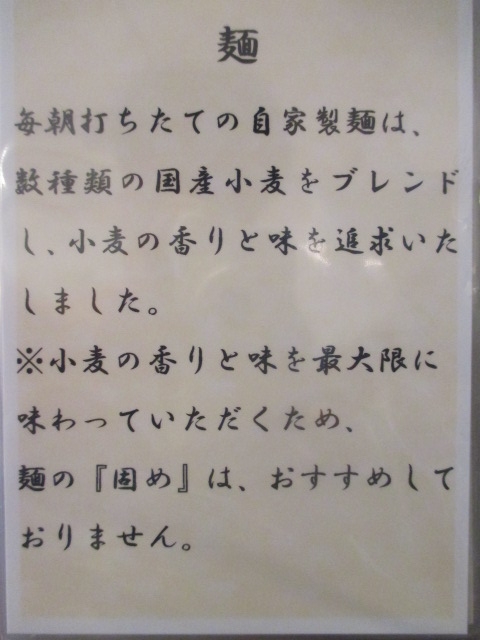 麺
毎朝打ちたての自家製麺は、
数種類の国産小麦をブレンド
し、小麦の香りと味を追求いた
しました。
※小麦の香りと味を最大限に
味わっていただくため、
麺の『固め』は、おすすめして
おりません。